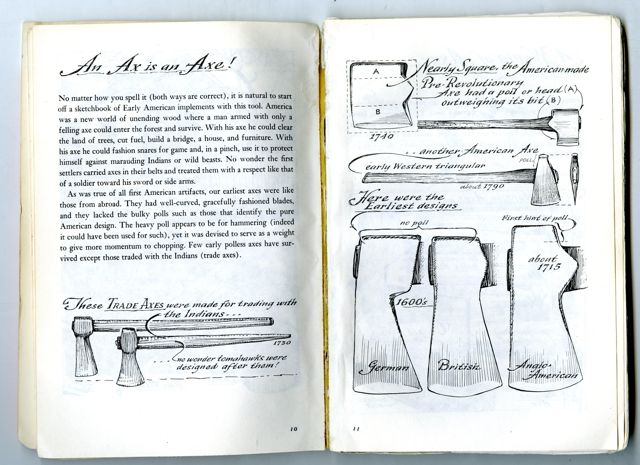 An Ax is an Axe!
No matter how you spell it (both ways are correct), it is natural to start
off a sketchbook of Early American implements with this tool. America
was a new world of unending wood where a man armed with only a
felling axe could enter the forest and survive. With his axe he could clear
the land of trees, cut fuel, build a bridge, a house, and furniture. With
his axe he could fashion snares for game and, in a pinch, use it to protect
himself against marauding Indians or wild beasts. No wonder the first
settlers carried axes in their belts and treated them with a respect like that
of a soldier toward his sword or side arms.
As was true of all first American artifacts, our earliest axes were like
those from abroad. They had well-curved, gracefully fashioned blades,
and they lacked the bulky polls such as those that identify the pure
American design. The heavy poll appears to be for hammering (indeed
it could have been used for such), yet it was devised to serve as a weight
to give more momentum to chopping. Few early polless axes have sur-
vived except those traded with the Indians (trade axes).
These TRADE AXES were made for trading with
the Indians...
1730
....no wonder tomahawks were
designed after them!
10
A
B
1740
Nearly Square, the American-made
Pre-Revolutionary
Axe had a poll or head (A)
outweighing its bit (B)
...another American Axe
early Western triangular
POLL
about 1790
Here were the
Earliest designs
no poll
First hint of poll
about
1715
1600's
German
British
Anglo-
American
11